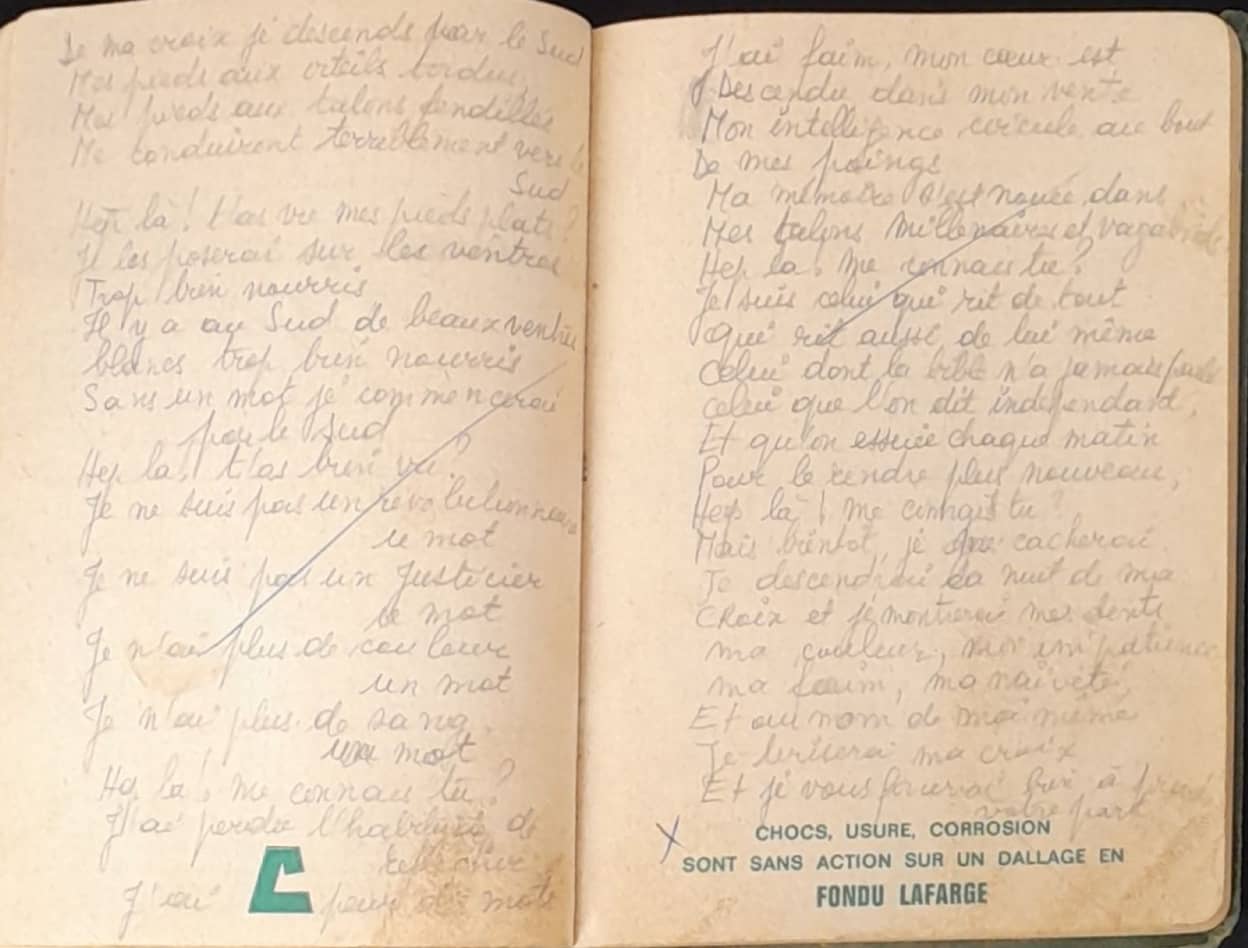 De ma croix je descends par le Sud
Mes pieds aux orteils tordus,
Mes pieds aux talons fendillés
Me conduiront terriblement vers le
Sud
Hep là! t'as vu mes pieds plats?
Je les poserai sur les ventres
Trop bien nourris
Il y a au Sud de beaux ventres
blancs trop bien nourris
Sans un mot je commencerai
par le Sud
Hep la! t'as bien vu?
Je ne suis pas un révolutionnaire
le mot
Je ne suis pas un Justicier
le mot
Je n'ai plus de couleur
un mot
Je n'ai plus de sang
un mot
Hep la! me connais tu?
J'ai perdu l'habitude de
J'ai peur des mots
J'ai faim, mon cœur est
Descendu dans mon ventre
Mon intelligence circule au bout
De mes poings
Ma mémoire s'est nouée dans
Mes talons millénaires et vagabonds
Hep la! me connais tu?
Je suis celui qui rit de tout
qui rit aussi de lui même
Celui dont la bible n'a jamais parlé
celui que l'on dit indépendant,
Et qu'on essuie chaque matin
Pour le rendre plus nouveau,
Hep là! me connais tu?
Mais bientôt, je me cacherai
Je descendrai la nuit de ma
Croix et je montrerai mes dents
ma couleur, mon impatience
ma faim, ma naïveté,
Et au nom de moi même
Je briserai ma croix
Et je vous
votre part
CHOCS, USURE, CORROSION
SONT SANS ACTION SUR UN DALLAGE EN
FONDU LAFARGE